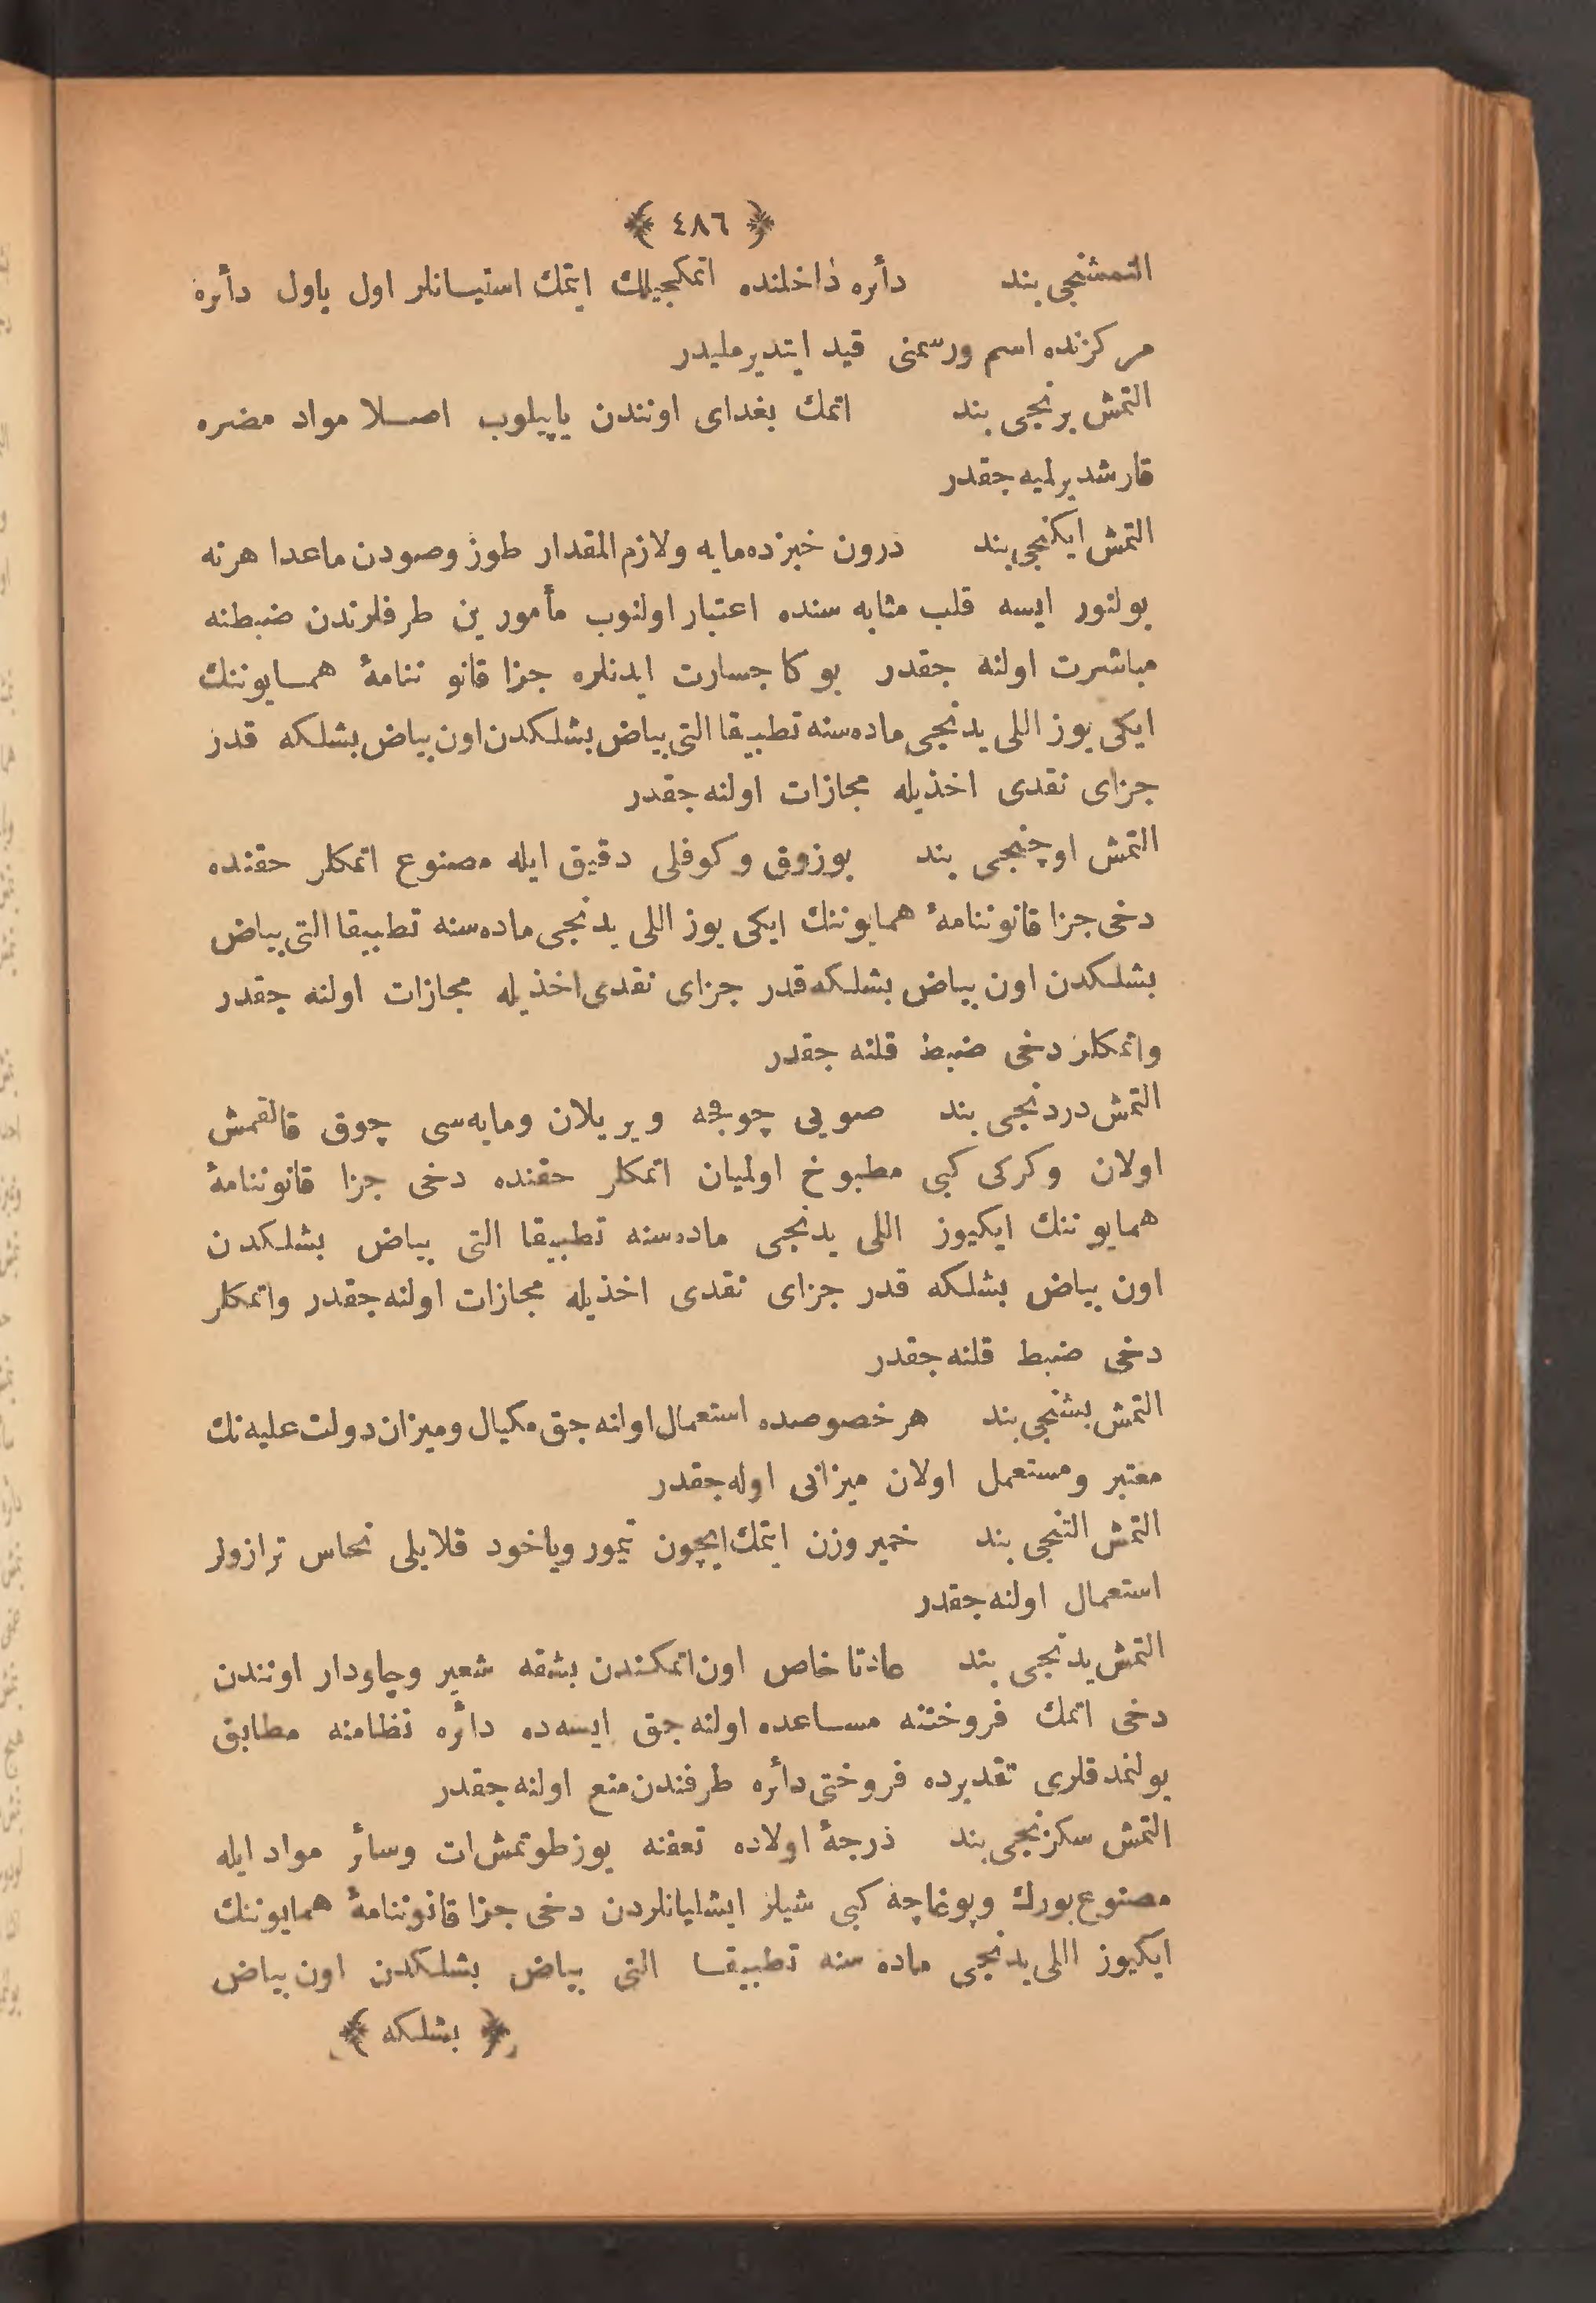 ﴿ ٤٨٦ ﴾
التمشنجی بند دأره داخلنده اتمكجيلك ايتمك استيانلر اول باول دأره
مركزنده اسم ورسمنی قيد ايتديرمليدر
التمش برنجی بند اتمك بغدای اونندن ياپيلوب اصلا مواد مضره
قارشديرلميه جقدر
التمش ايكنجی بند درون خبزده مايه ولازم المقدار طوز وصودن ماعدا هرنه
بولنور ايسه قلب مثابه سنده اعتبار اولنوب مأمورين طرفلرندن ضبطنه
مباشرت اولنه جقدر بوكا جسارت ايدنلره جزا قانو ننامۀ همايوننك
ايكی يوز اللی يدنجی ماده سنه تطبيقا التی بياض بشلكدن اون بياض بشلكه قدر
جزای نقدی اخذيله مجازات اولنه جقدر
التمش اوچنجی بند بوزوق وكوفلی دقيق ايله مصنوع اتمكلر حقنده
دخی جزا قانوننامۀ همايوننك ايكی يوز اللی يدنجی ماده سنه تطبيقا التی بياض
بشلكدن اون بياض بشلكه قدر جزای نقدی اخذيله مجازات اولنه جقدر
واتمكلر دخی ضبط قلنه جقدر
التمش دردنجی بند صويی چوجه ويريلان ومايه سی چوق قالقمش
اولان وكركی كبی مطبوخ اولميان اتمكلر حقنده دخی جزا قانوننامۀ
همايو ننك ايكيوز اللی يدنجی ماده سنه تطبيقا التی بياض بشلكدن
اون بياض بشلكه قدر جزای نقدی اخذيله مجازات اولنه جقدر واتمكلر
دخی ضبط قلنه جقدر
التمش بشنجی بند هر خصوصده استعمال اولنه جق مكيال وميزان دولت عليه نك
معتبر ومستعمل اولان ميزانی اوله جقدر
التمش التنجی بند خمير وزن ايتمك ايچون تيمور وياخود قلايلی نحاس ترازولر
استعمال اولنه جقدر
التمش يدنجی بند عادتا خاص اون اتمكندن بشقه شعير وچاودار اونندن
دخی اتمك فروختنه مساعده اولنه جق ايسه ده دأره نظامنه مطابق
بولنمدقلری تقديرده فروختی دأره طرفندن منع اولنه جقدر
التمش سكزنجی بند درجۀ اولاده تعفنه يوز طوتمش ات وسأر مواد ايله
مصنوع بورك وپوغاچه كبی شيلر ايشليانلردن دخی جزا قانوننامۀ همايوننك
ايكيوز اللی يدنجی ماده سنه تطبيقا التی بياض بشلكدن اون بياض
﴿ بشلكه ﴾